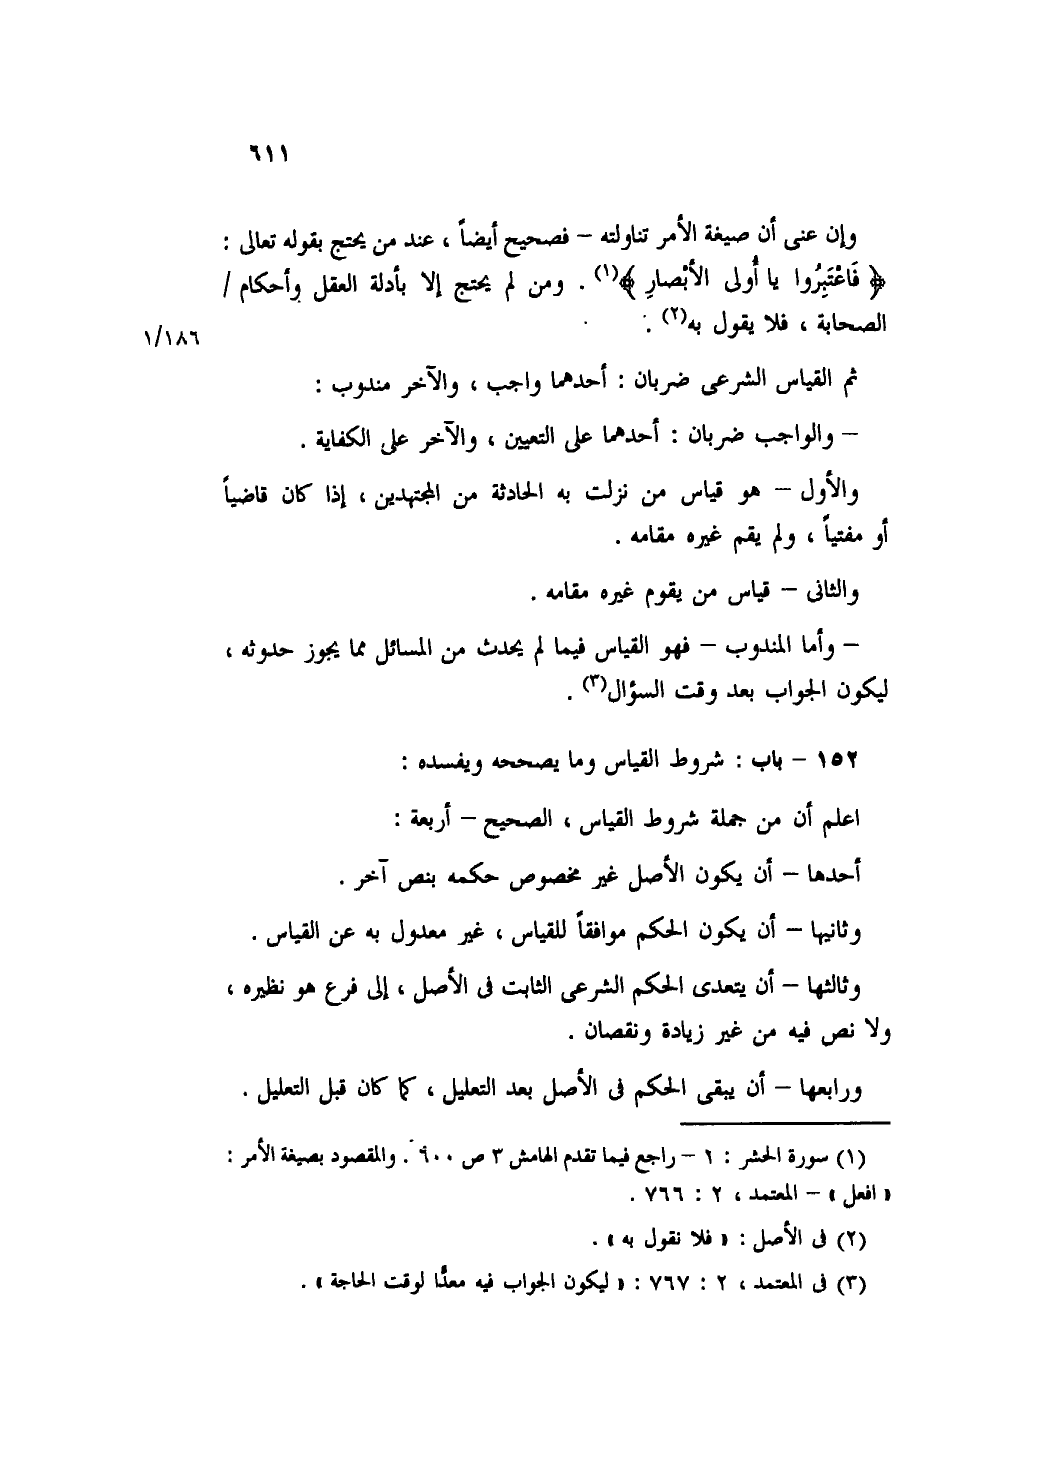 ٦١١
وإن عنى أن صيغة الأمر تناولته – فصحيح أيضاً ، عند من يحتج بقوله تعالى :
﴿ فَاعْتَبِرُوا يا أُولى الأبْصارِ ﴾(١) . ومن لم يحتج إلا بأدلة العقل وأحكام /
الصحابة ، فلا يقول به(٢) .
١/١٨٦
ثم القياس الشرعى ضربان : أحدهما واجب ، والآخر مندوب :
– والواجب ضربان : أحدهما على التعيين ، والآخر على الكفاية .
والأول – هو قياس من نزلت به الحادثة من المجتهدين ، إذا كان قاضياً
أو مفتياً ، ولم يقم غيره مقامه .
والثانى – قياس من يقوم غيره مقامه .
– وأما المندوب – فهو القياس فيما لم يحدث من المسائل مما يجوز حدوثه ،
ليكون الجواب بعد وقت السؤال(٣) .
١٥٢ – باب : شروط القياس وما يصححه ويفسده :
اعلم أن من جملة شروط القياس ، الصحيح – أربعة :
أحدها – أن يكون الأصل غير مخصوص حكمه بنص آخر .
وثانيها – أن يكون الحكم موافقاً للقياس ، غير معدول به عن القياس .
وثالثها – أن يتعدى الحكم الشرعى الثابت فى الأصل ، إلى فرع هو نظيره ،
ولا نص فيه من غير زيادة ونقصان .
ورابعها – أن يبقى الحكم فى الأصل بعد التعليل ، كما كان قبل التعليل .
(١) سورة الحشر : ٢ – راجع فيما تقدم الهامش ٣ ص ٦٠٠ . والمقصود بصيغة الأمر :
« افعل » – المعتمد ، ٢ : ٧٦٦ .
(٢) فى الأصل : « فلا نقول به » .
(٣) فى المعتمد ، ٢ : ٧٦٧ : « ليكون الجواب فيه معدًّا لوقت الحاجة » .